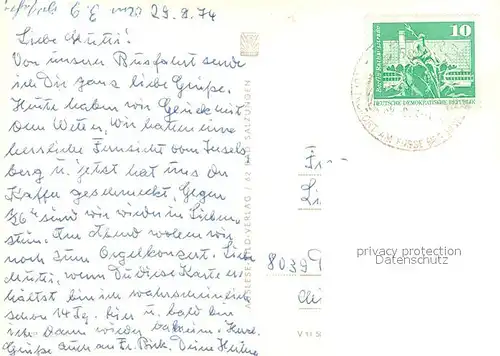 29.8.74
Liebe Mutti!
Von unserer Busfahrt sende
ich Dir ganz liebe Grüße.
Heute haben wir Glück mit
dem Wetter. Wir hatten eine
herrliche Fernsicht vom Insels
berg u. jetzt hat uns der
Kaffee geschmeckt. Gegen
sind wir wieder in Lieben-
stein. Am Abend wollen wir
noch zum Orgelkonzert. Liebe
Mutti, wenn Du diese Karte er-
hältst bin ich wahrscheinlich
schon 14 Tg. hier u. bald bin
ich dann wieder daheim. Herzl.
Grüße auch an Fr. Deine
AUSLESE-BILD-VERLAG / A2 BAD SALZUNGEN
10
DEUTSCHE DEMOKRATISCHE REPUBLIK
8039
privacy protection
Datenschutz